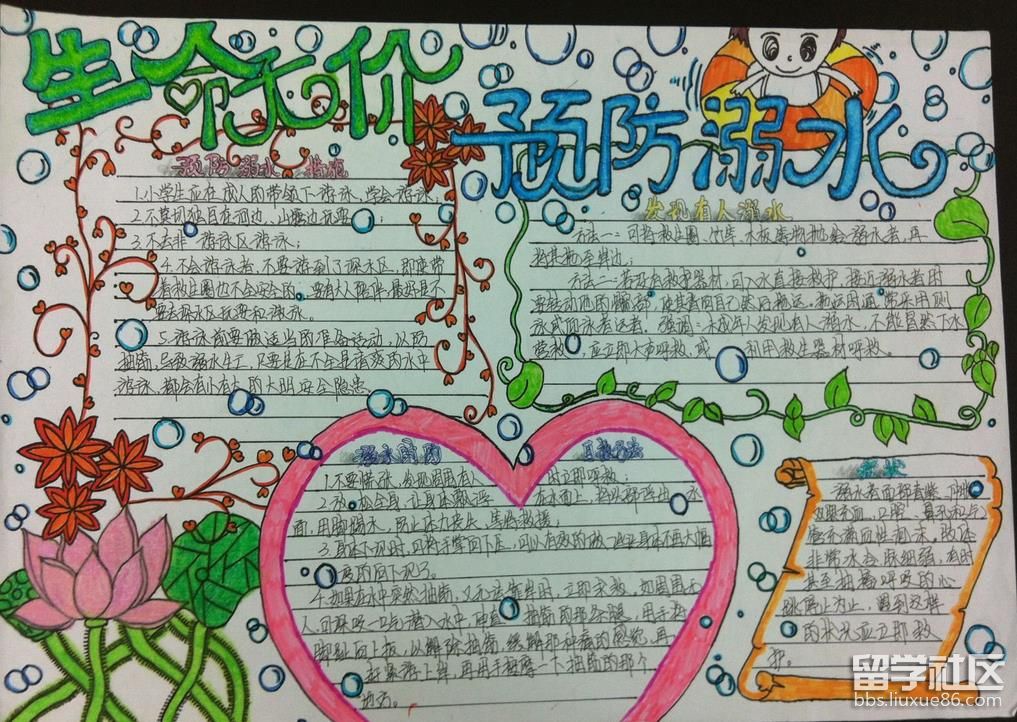 生命无价
预防溺水
预防溺水 措施
1.小学生应在成人的带领下游泳,学会游泳;
2.不要独自在河边、山塘边玩耍;
3.不去非 游泳区游泳;
4.不会游泳者,不要游到了深水区,即使带
着救生圈也不会安全的。要有大人陪伴
要去深水区玩耍和游泳。
5.游泳前要做适当的准备活动,以防
抽筋,导致溺水
游泳,都会有 安全隐患
发现有人溺水
方法一:可将救生圈、竹竿、木板等物抛给溺水者,再
将其拖至岸边;
方法二:若没有救护器材,可入水直接救护。接近溺水者时
要转动他的髋部,使其背向自己然后拖运。拖运时通常采用侧
泳或仰泳拖运者。强调:未成年人发现有人溺水,不能冒然下水
营救,应立即大声呼救,或 利用救生器材呼救。
溺水时的
自救方法
1.不要慌张,发现周围有人 时立即呼救;
2.放松全身,让身体漂浮 在水面上,将头部浮出 水
面,用脚踢水,防止体力丧失,等待救援;
3.身体下沉时,可将手掌向下压,可以有效的
的向下沉了。
4.如果在水中突然抽筋,又无法靠岸时,立即求救。如周围无
人,可深吸一口气潜入水中,伸直 抽筋的那条腿,用手将
脚趾向上扳,以解除抽筋。缓解那种痛的感觉,再
赶紧游上岸,再用手按摩一下抽筋的那个
地方。
症状
溺水者面部青紫、
充血,口腔、鼻孔和气
管充满血性泡沫。肢体
非常冰冷,脉细弱,有时
甚至抽搐呼吸的心
跳停止为止,遇到这样
的状况应立即救
护。
留学社区
bbs.liuxue86.com